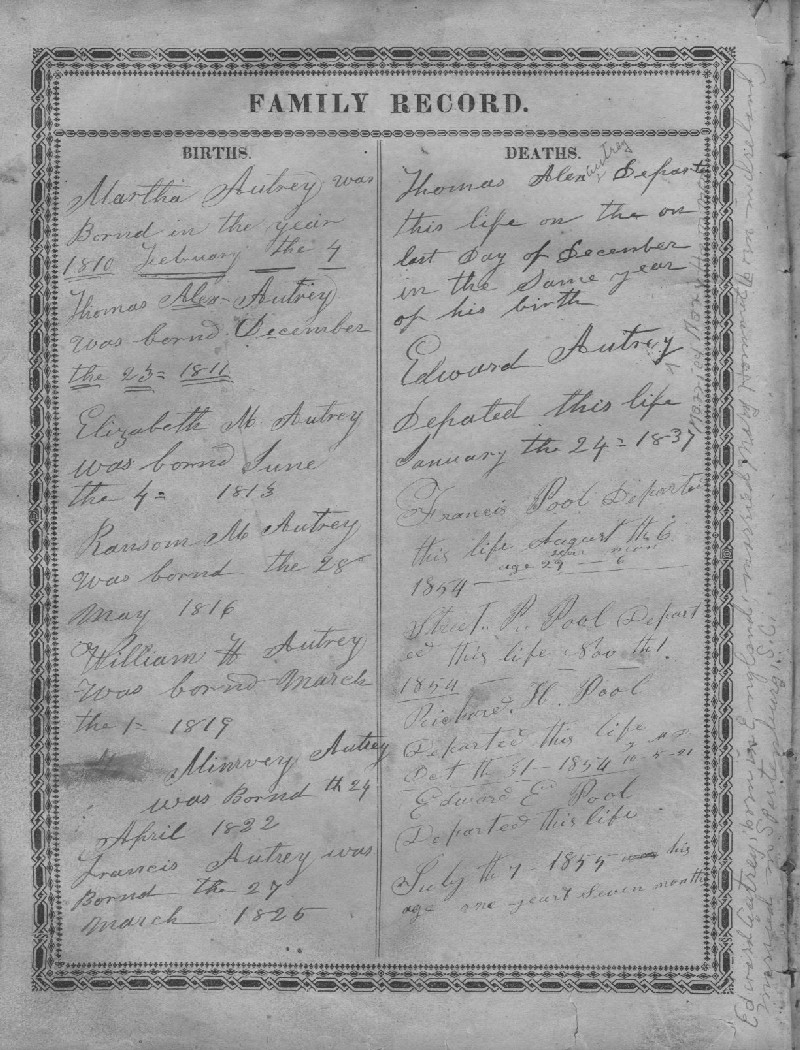 FAMILY RECORD.
BIRTHS.
Martha Autrey was
Bornd in the year
1810 Febuary the 4
Thomas Alex- Autrey
was bornd December
the 23= 1811
Elizabeth M Autrey
was bornd June
the 4= 1813
Ransom M Autrey
was bornd the 28
May 1816
William H Autrey
was bornd March
the 1= 1819
Minrvey Autrey
was Bornd th 24
April 1822
Francis Autrey was
Bornd the 27
March 1825
DEATHS.
Autrey
Thomas Alex Depart
this life on the on
last Day of December
in the Same year
of his birth
Edward Autrey
Depated this life
January the 24= 1837
Francis Pool Departed
this life August th 6
age 29 6
1854
R. Pool Depart
ed this life Nov th 1
1854
Richard H. Pool
Departed this life
Oct th 31- 1854
Edward E Pool
Departed this life
July th 7- 1855 his
age one year Seven month
Married Mary
Edward Autrey born in England married Mary Born in Ireland
married in Spartenburg S.C.